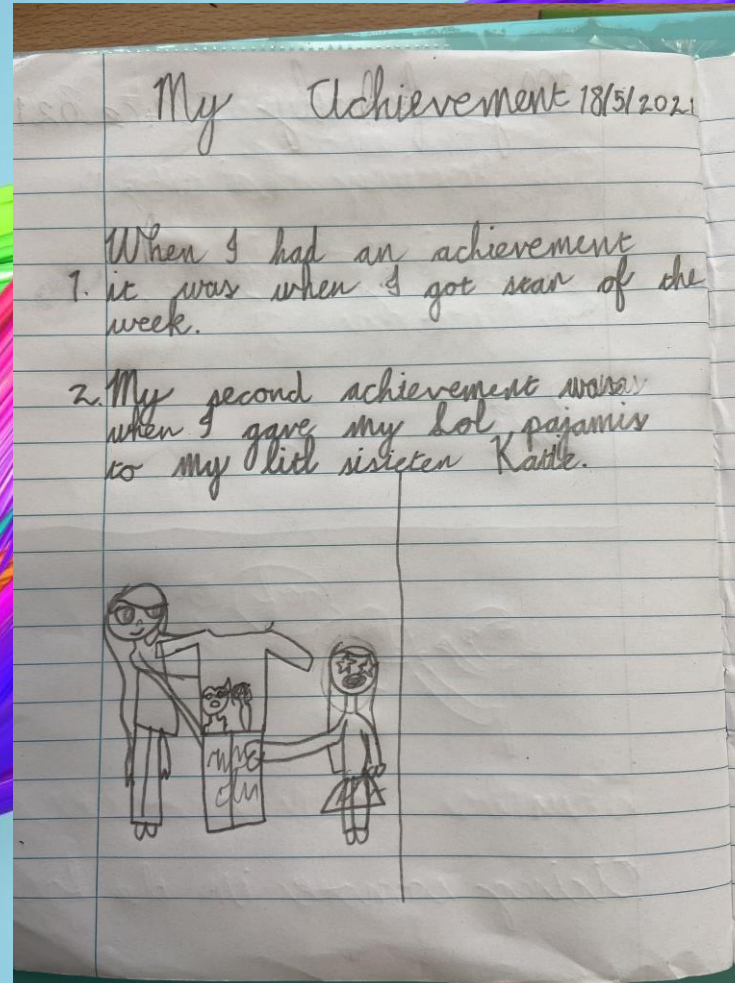 My Achievement 18/5/2021
When I had an achievement
1. it was when I got star of the
week.
2. My second achievement
when I gave my Lol pajamis
to my litl